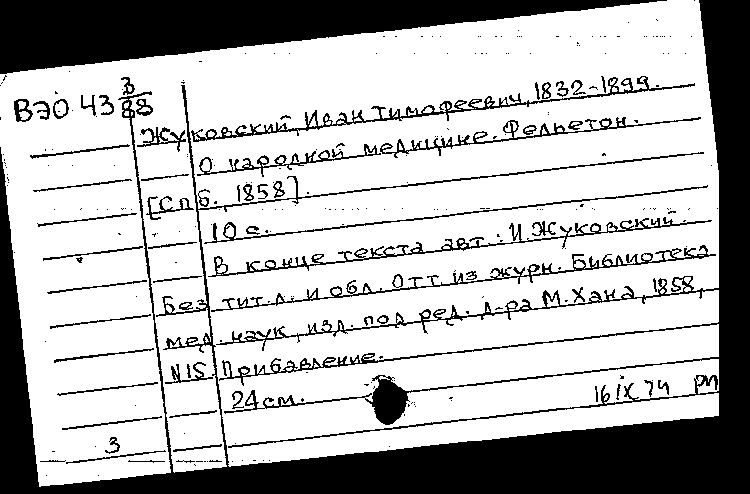 ВЭО 43 3/88
Жуковский, Иван Тимофеевич, 1832-1899.
О народной медицине. Фельетон.
[Спб., 1858].
10 с.
В конце текста авт.: И. Жуковский.
Без тит. л. и обл. Отт. из журн. Библиотека
мед. наук, изд. под ред. д-ра М. Хана, 1858,
N15. Прибавление.
24 см.
16 IX 74
3